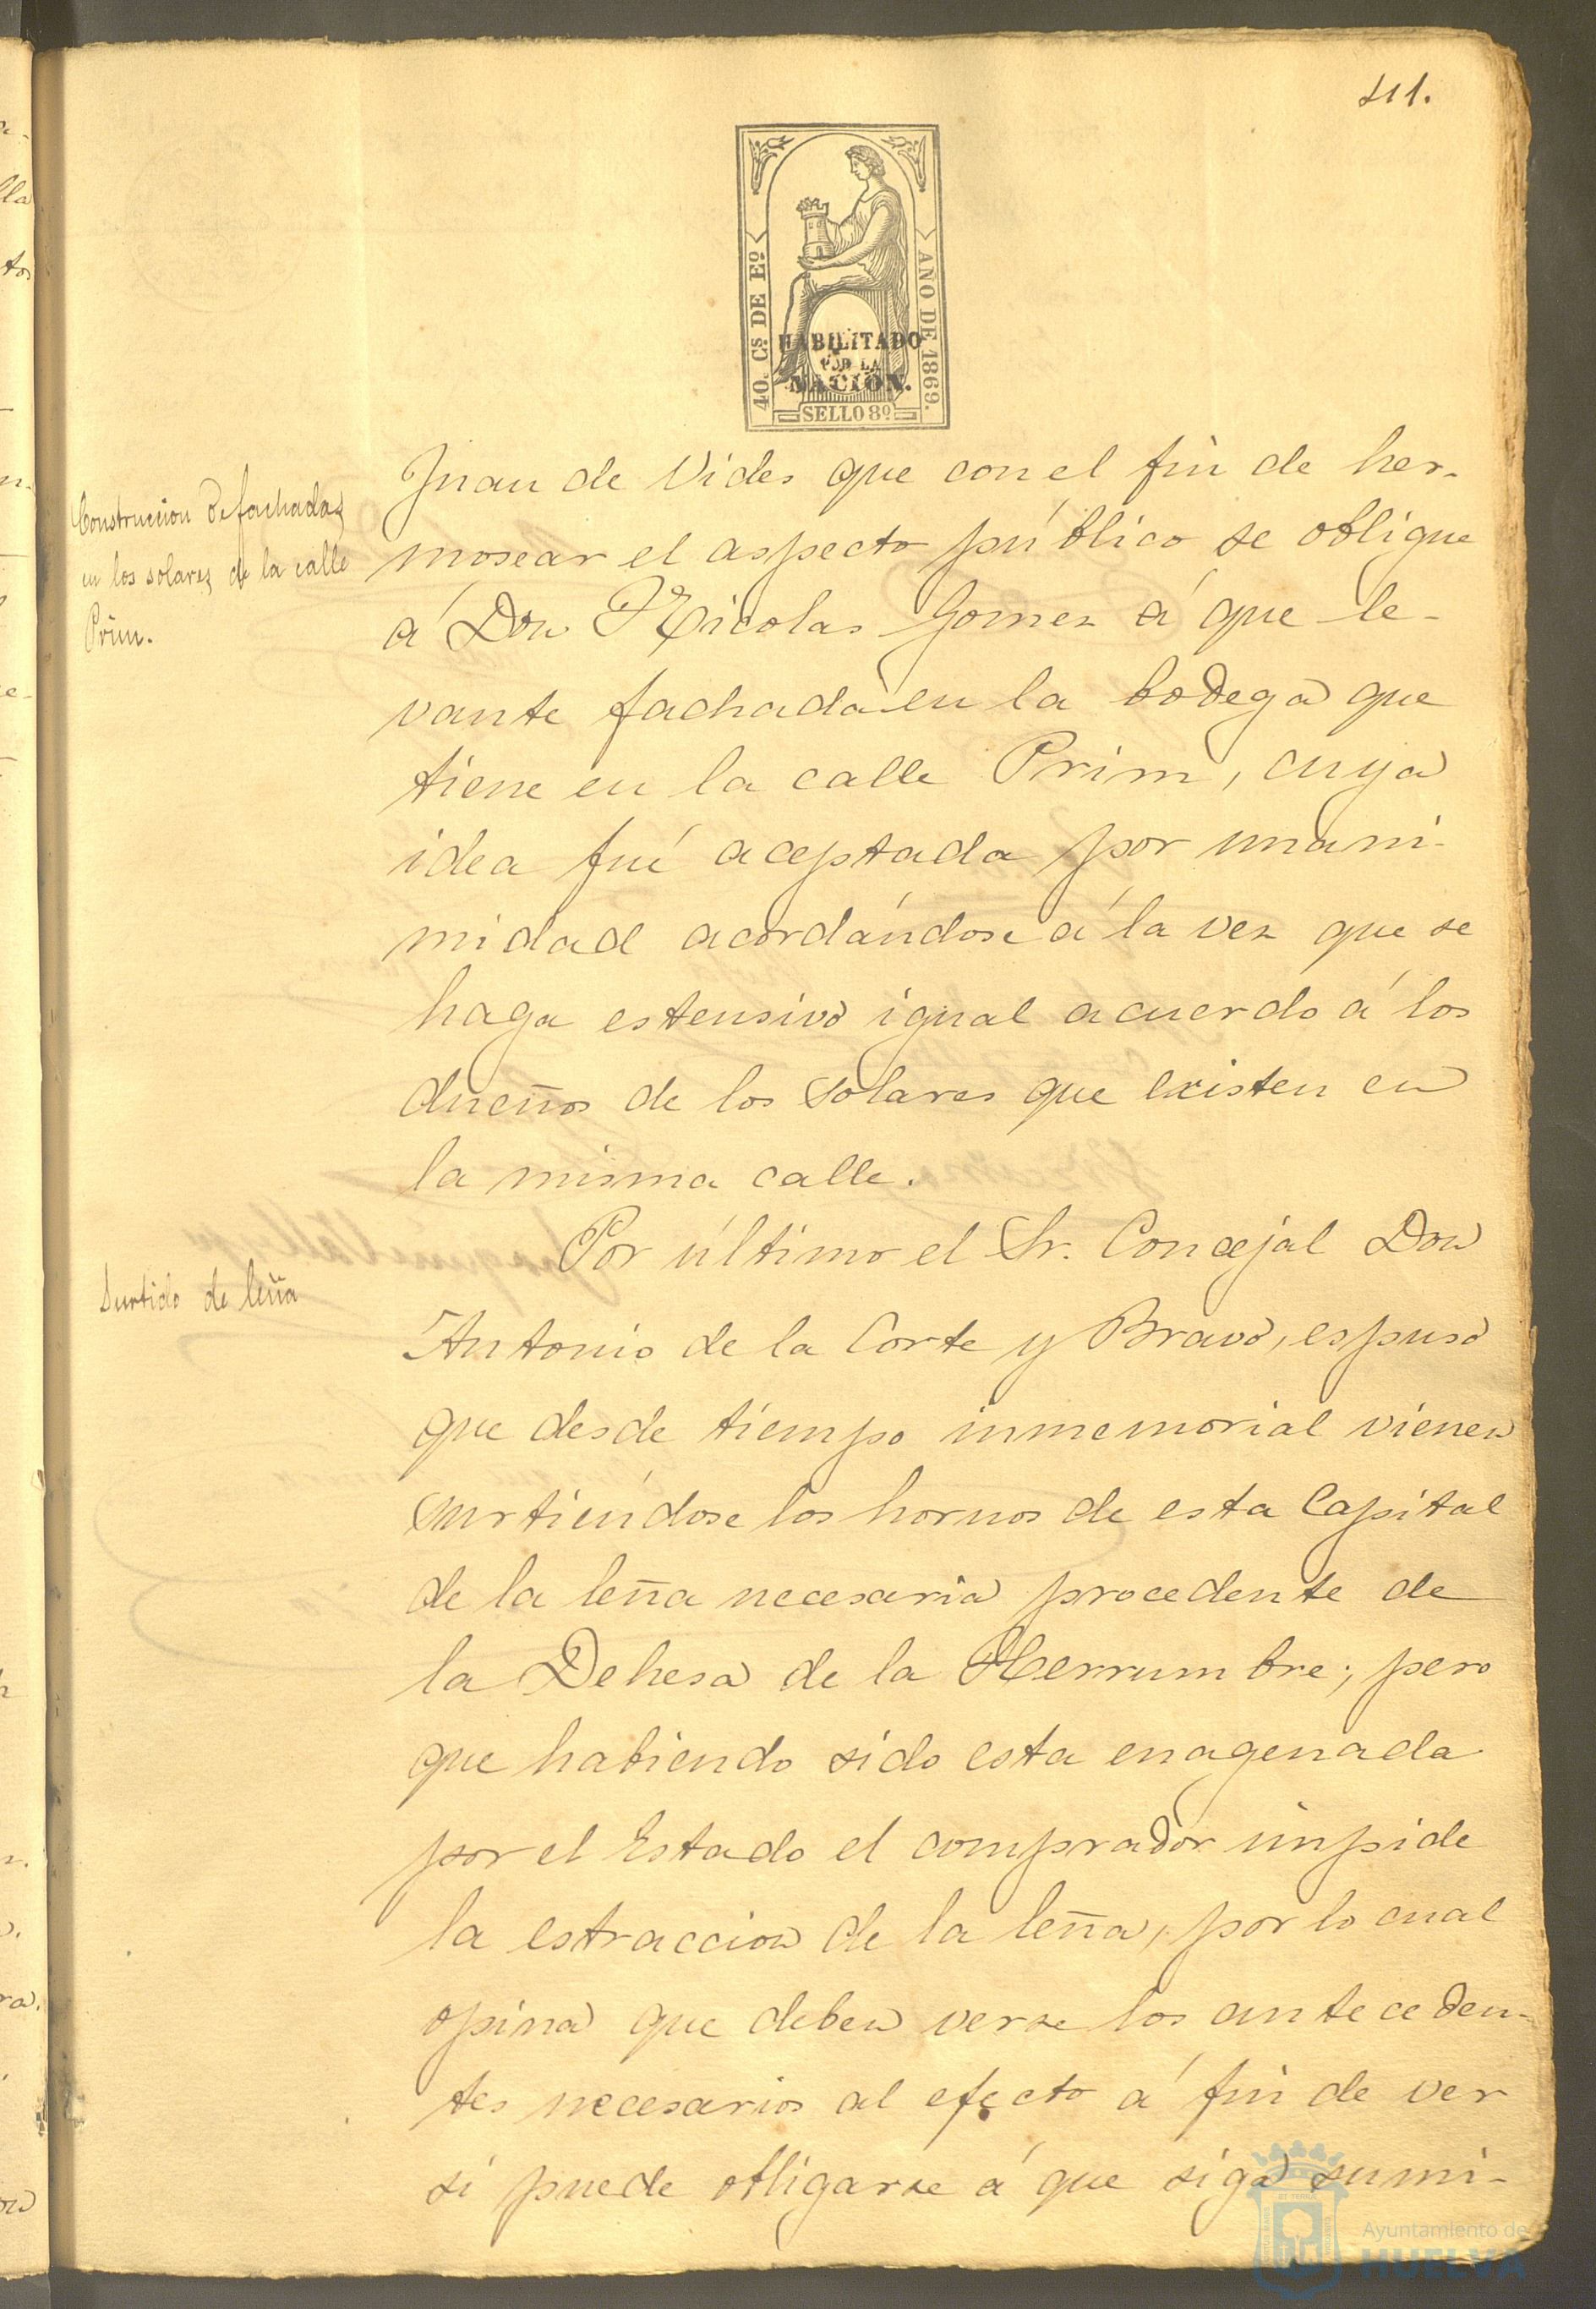 111.
40. Cs. DE Eo.
AÑO DE 1869.
HABILITADO
POR LA
NACION.
SELLO 8º
Construccion de fachadas
en los solares de la calle
Prim.
Juan de Vides que con el fin de her-
mosear el aspecto público se obligue
á Don Nicolas Gomez á que le-
vante fachada en la bodega que
tiene en la calle Prim, cuya
idea fué aceptada por unani-
midad acordándose á la vez que se
haga estensivo igual acuerdo á los
dueños de los solares que existen en
la misma calle.
Surtido de leña
Por último el Sr. Concejal Don
Antonio de la Corte y Bravo, espuso
que desde tiempo inmemorial vienen
surtiéndose los hornos de esta Capital
de la leña necesaria procedente de
la Dehesa de la Herrumbre; pero
que habiendo sido esta enagenada
por el Estado el comprador impide
la estraccion de la leña, por lo cual
opina que deben verse los anteceden-
tes necesarios al efecto á fin de ver
si puede obligarse á que siga sumi-
Ayuntamiento de
HUELVA